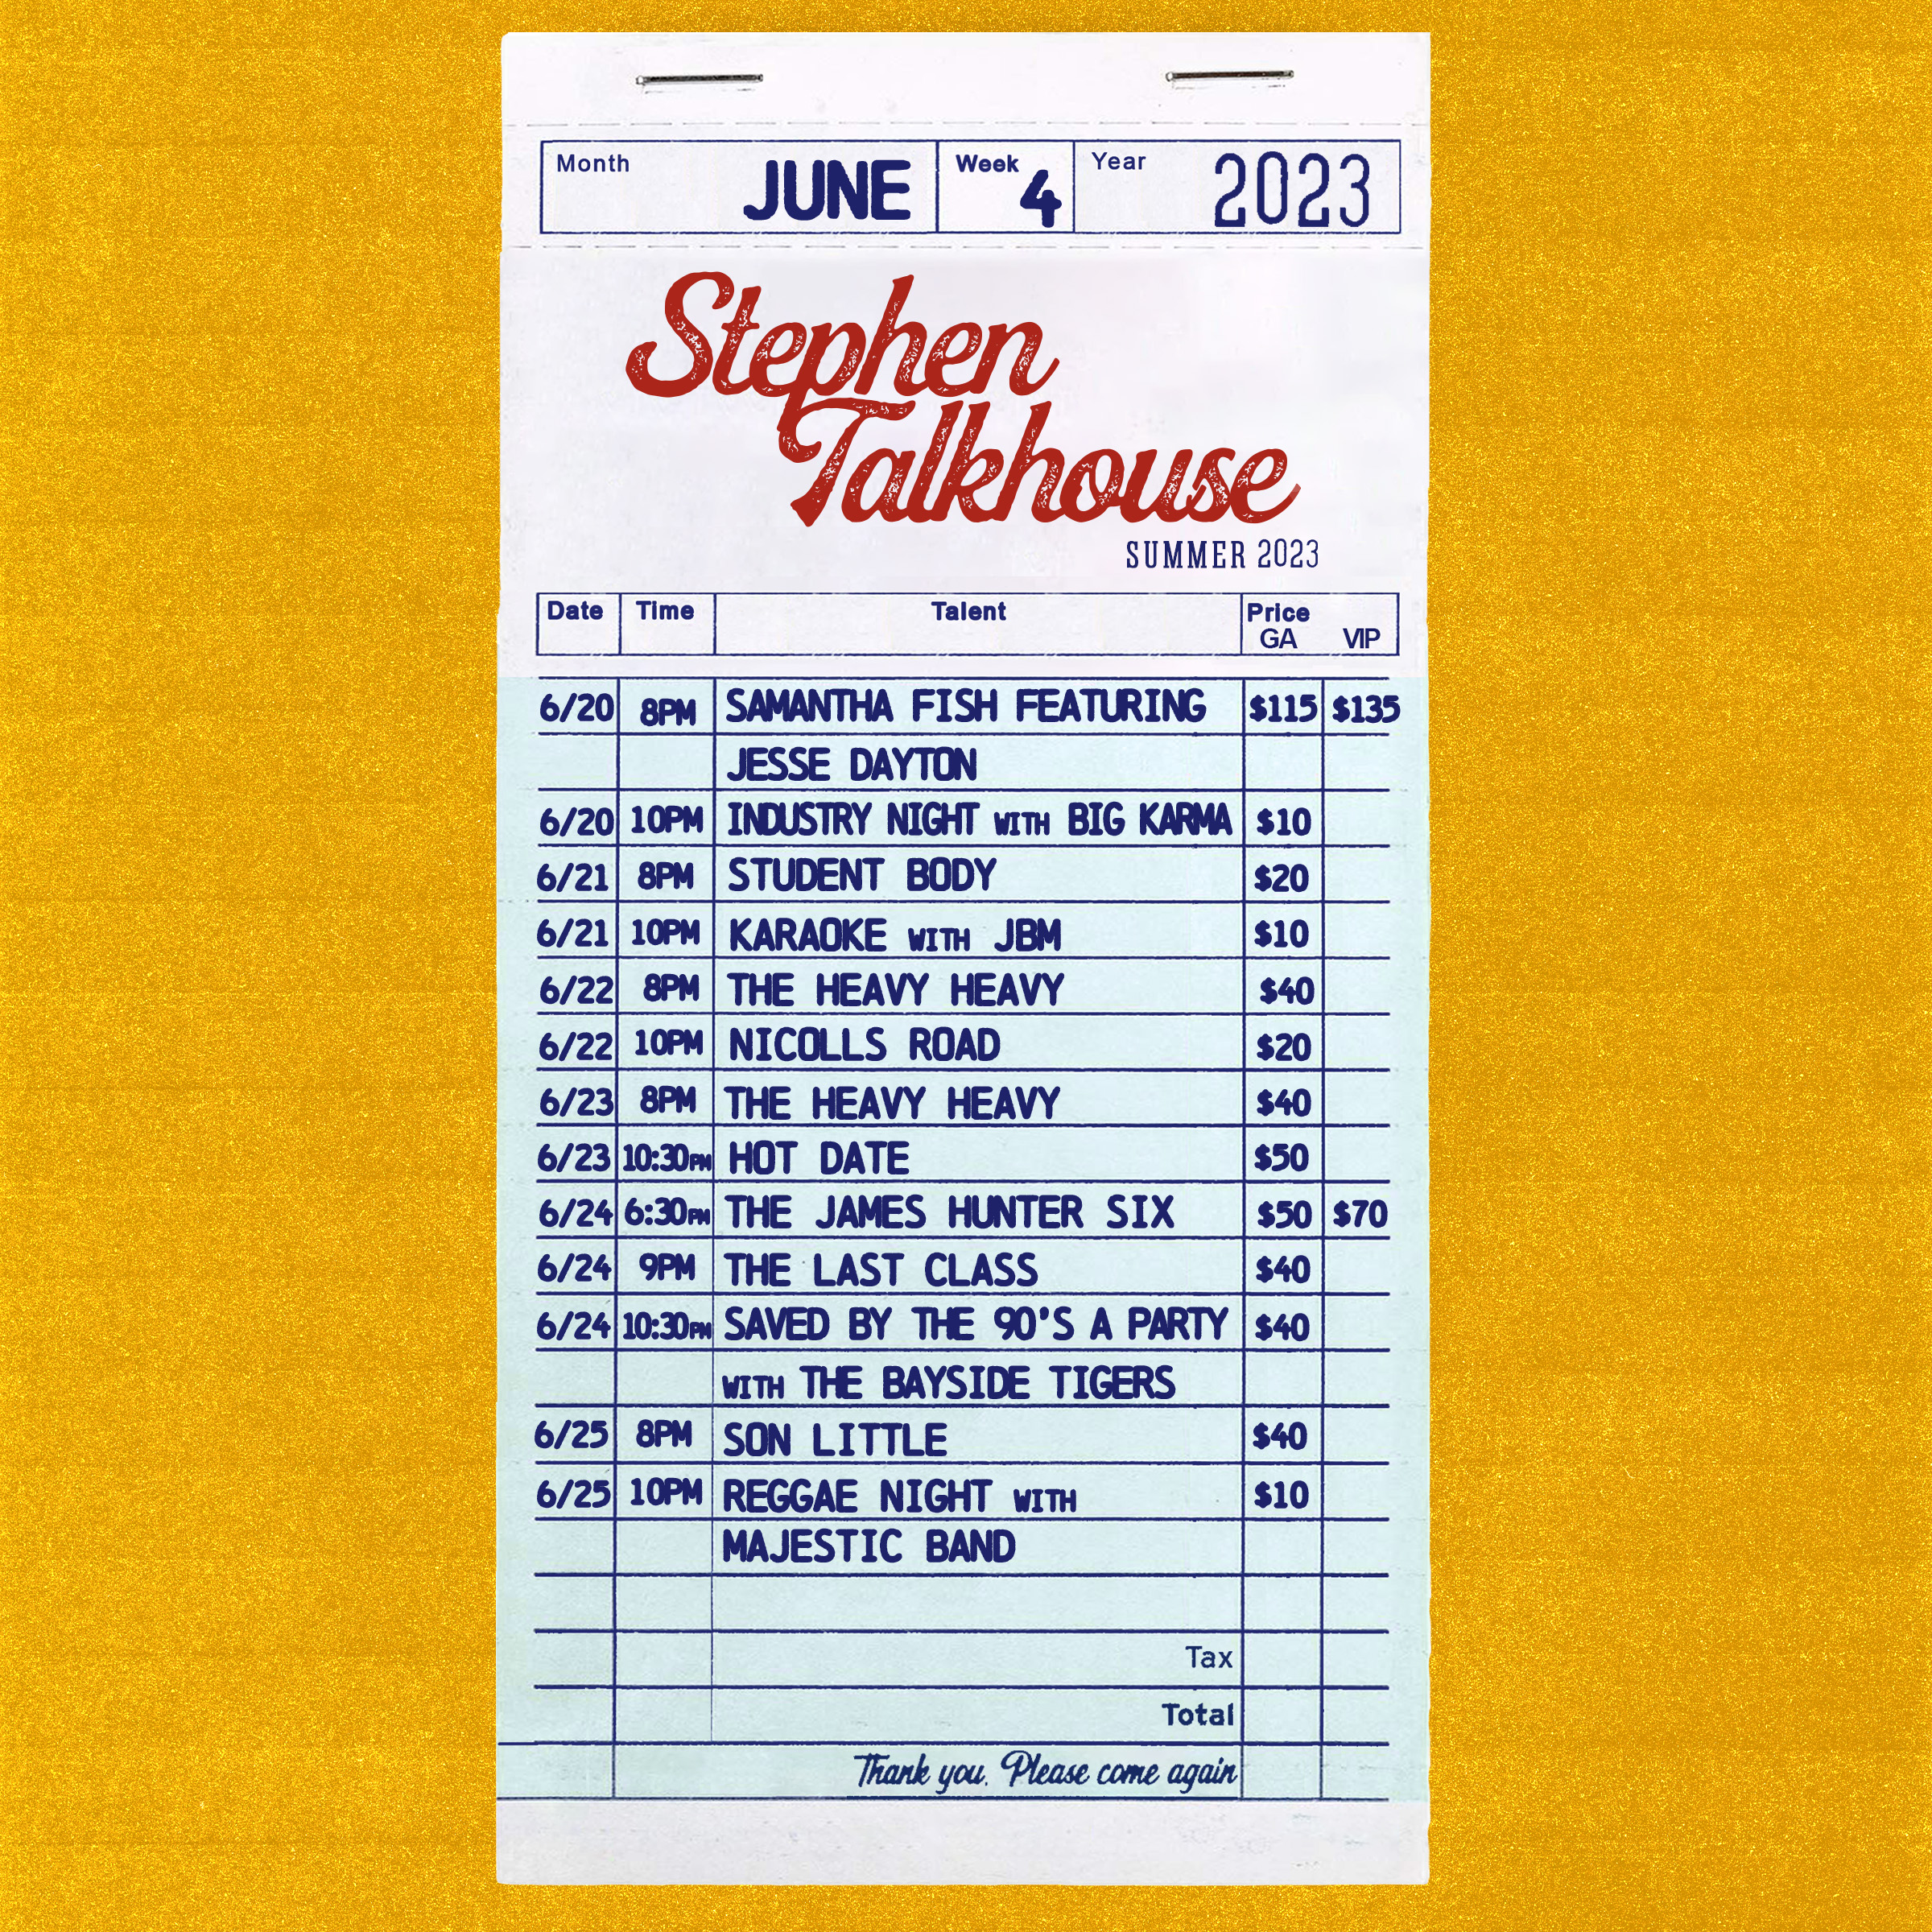 Month JUNE Week 4 Year 2023
Stephen
Talkhouse
SUMMER 2023
Date Time Talent Price
GA VIP
6/20 8PM SAMANTHA FISH FEATURING $115 $135
JESSE DAYTON
6/20 10PM INDUSTRY NIGHT WITH BIG KARMA $10
6/21 8PM STUDENT BODY $20
6/21 10PM KARAOKE WITH JBM $10
6/22 8PM THE HEAVY HEAVY $40
6/22 10PM NICOLLS ROAD $20
6/23 8PM THE HEAVY HEAVY $40
6/23 10:30PM HOT DATE $50
6/24 6:30PM THE JAMES HUNTER SIX $50 $70
6/24 9PM THE LAST CLASS $40
6/24 10:30PM SAVED BY THE 90'S A PARTY $40
WITH THE BAYSIDE TIGERS
6/25 8PM SON LITTLE $40
6/25 10PM REGGAE NIGHT WITH $10
MAJESTIC BAND
Tax
Total
Thank you. Please come again